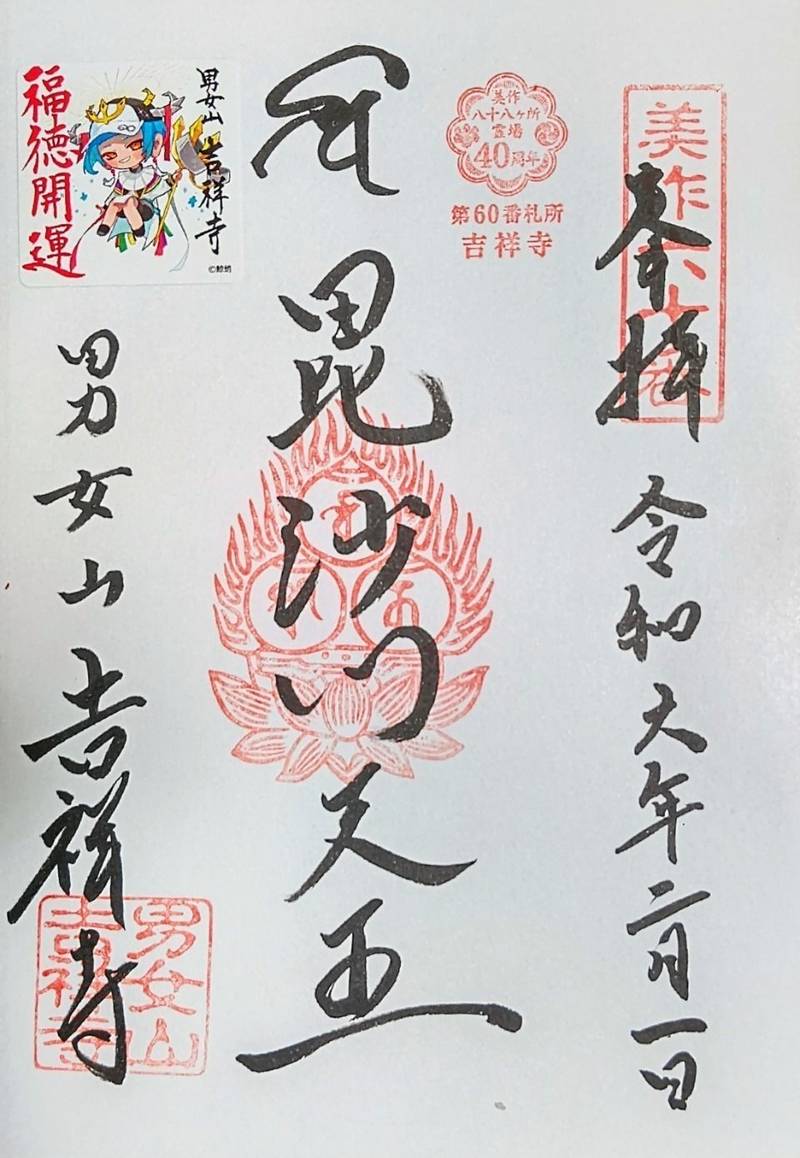 美作六十番
奉拝
令和六年二月一日
美作
八十八ヶ所
霊場
40周年
第60番札所
吉祥寺
毘沙門天王
男女山 吉祥寺
福徳開運
男女山 吉祥寺
男女山
吉祥寺